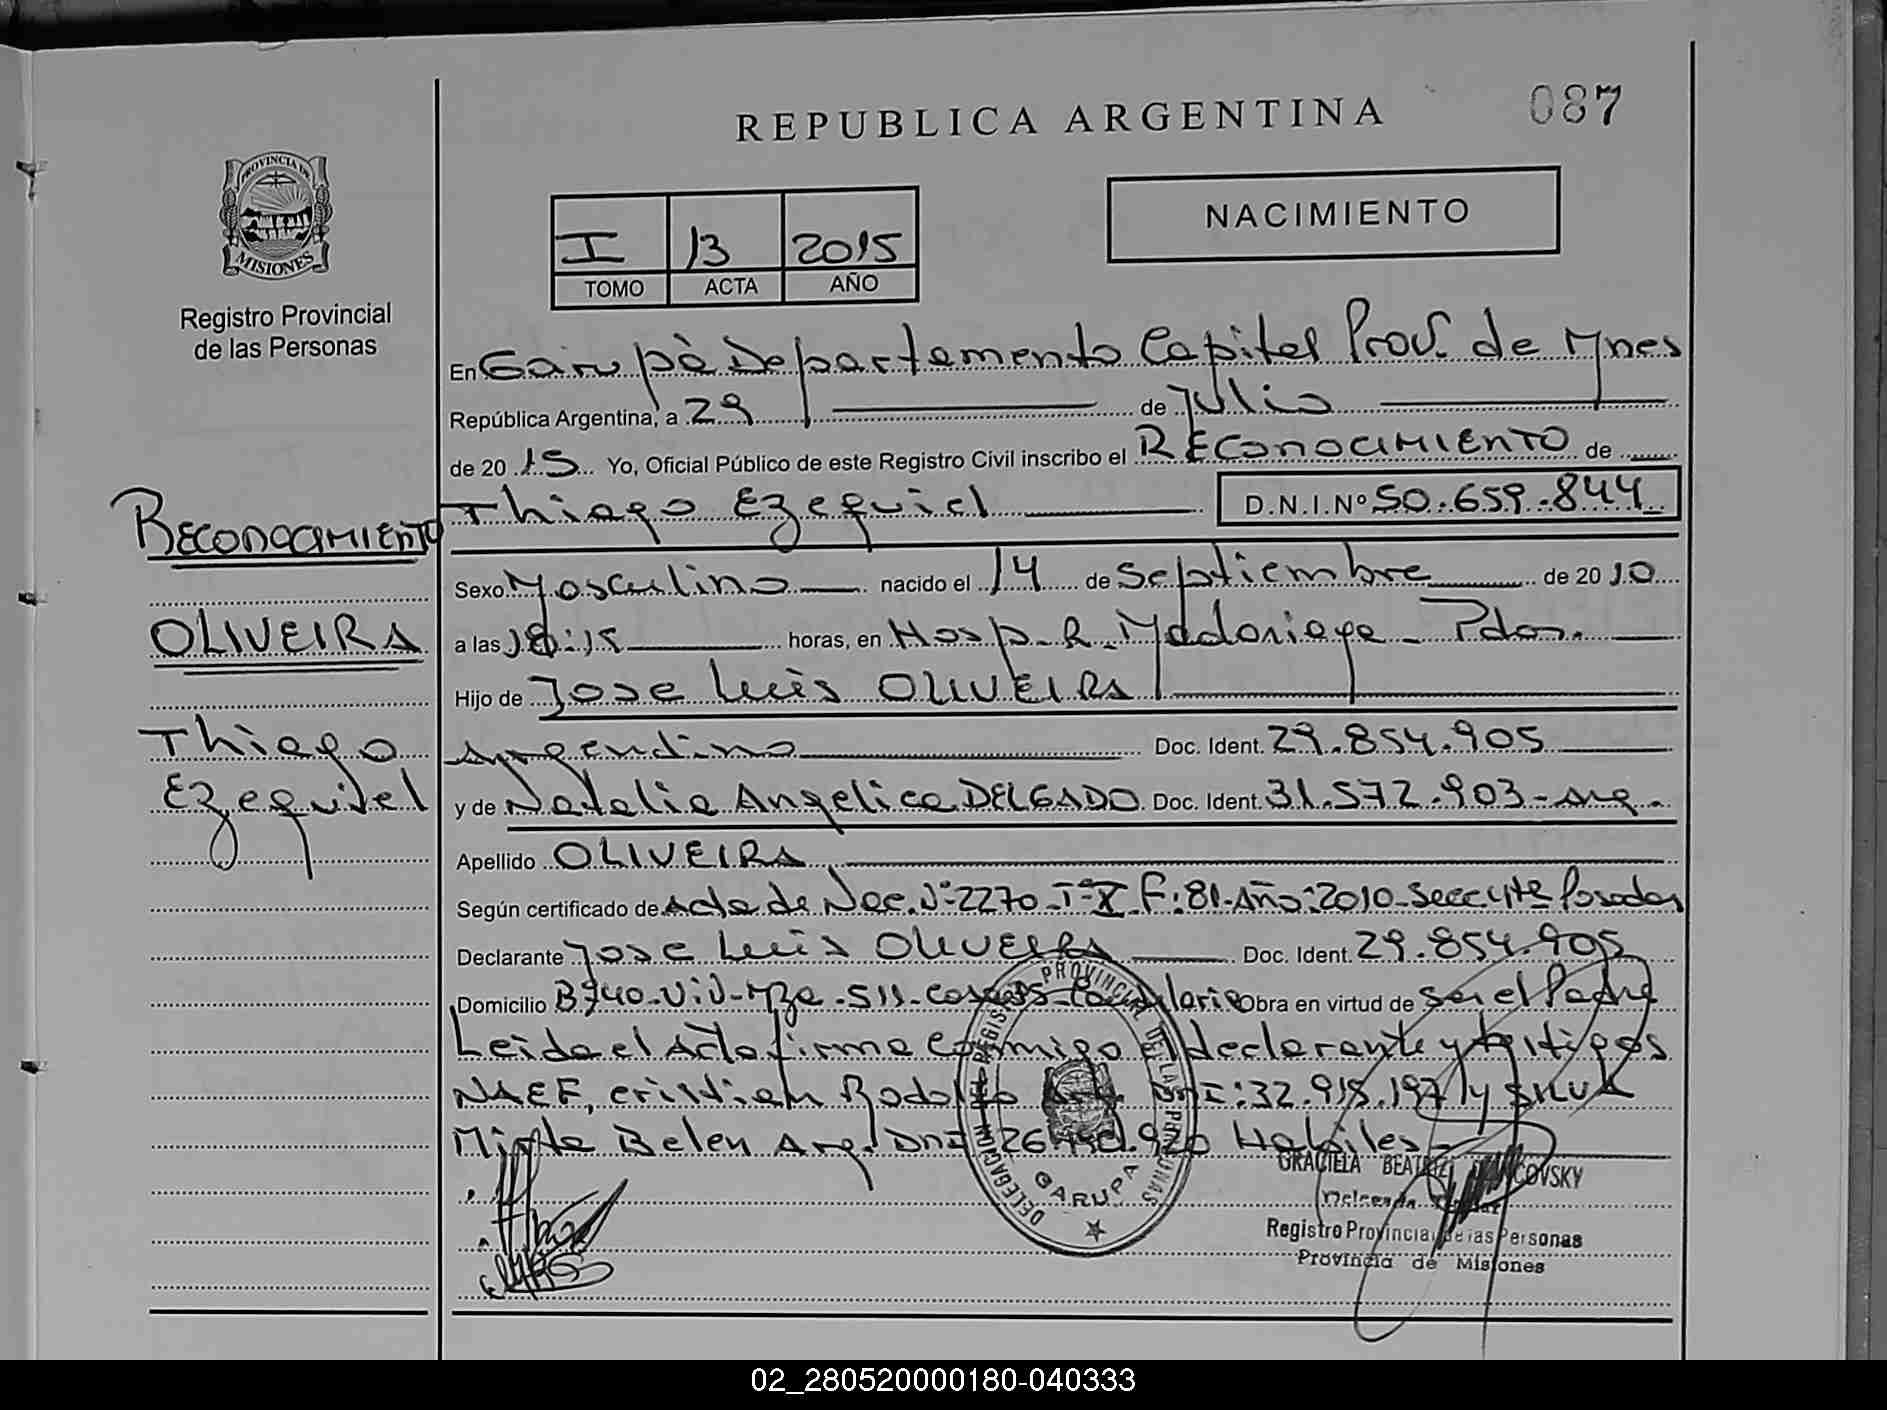 REPUBLICA ARGENTINA
087
PROVINCIA DE
MISIONES
Registro Provincial
de las Personas
I 13 2015
TOMO ACTA AÑO
NACIMIENTO
En Garupà Departamento Capital Prov. de Mnes
República Argentina, a 29 de Julio
de 20 15 Yo, Oficial Público de este Registro Civil inscribo el RECONOCIMIENTO de
Thiago Ezequiel D.N.I.Nº 50.659.844
RECONOCIMIENTO
Sexo Masculino nacido el 14 de Septiembre de 20 10
OLIVEIRA
a las 18:15 horas, en Hosp. R. Madariaga - Pdas.
Hijo de Jose Luis OLIVEIRA
Thiago
Ezequiel
Argentino Doc. Ident. 29.854.905
y de Natalia Angelica DELGADO Doc. Ident. 31.572.903 - Arg.
Apellido OLIVEIRA
Según certificado de Acta de Nac. Nº 2270 - Tº X - F: 81 - Año: 2010 - Secc 4ta Posadas
Declarante Jose Luis OLIVEIRA Doc. Ident. 29.854.905
Domicilio Obra en virtud de ser el Padre
Leida el Acta firma Conmigo el declarante y testigos
NAEF, Cristian Rodolfo Arg. DNI: 32.915.197 y SILVA
Mirta Belen Arg. DNI 26. Habiles-
DELEGACION DEL REGISTRO PROVINCIAL DE LAS PERSONAS
GARUPA
GRACIELA BEATRIZ
Delegada Titular
Registro Provincial de las Personas
Provincia de Misiones
02_280520000180-040333